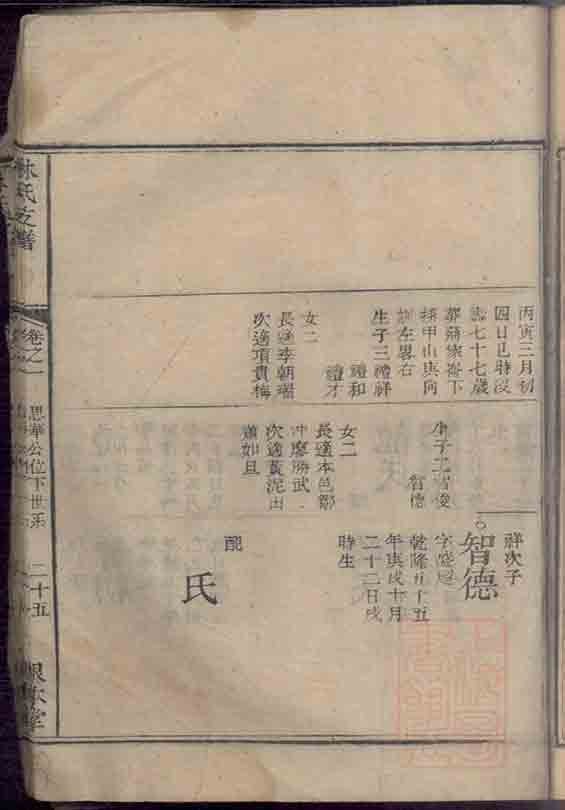 丙寅三月初
四日巳時沒
壽七十七歲
甲山庚向
左畧右
生子三禮祥
禮和
禮才
女二
長適李朝瑞
次適項貴梅
生子二智俊
智德
女二
長適本邑鄒
冲廖勝武
次適黃泥田
蕭如旦
祥次子
智德
乾隆五十五
年庚戌十月
二十二日戌
時生
配
氏
林氏支譜
卷之一
思華公位下世系
二十五